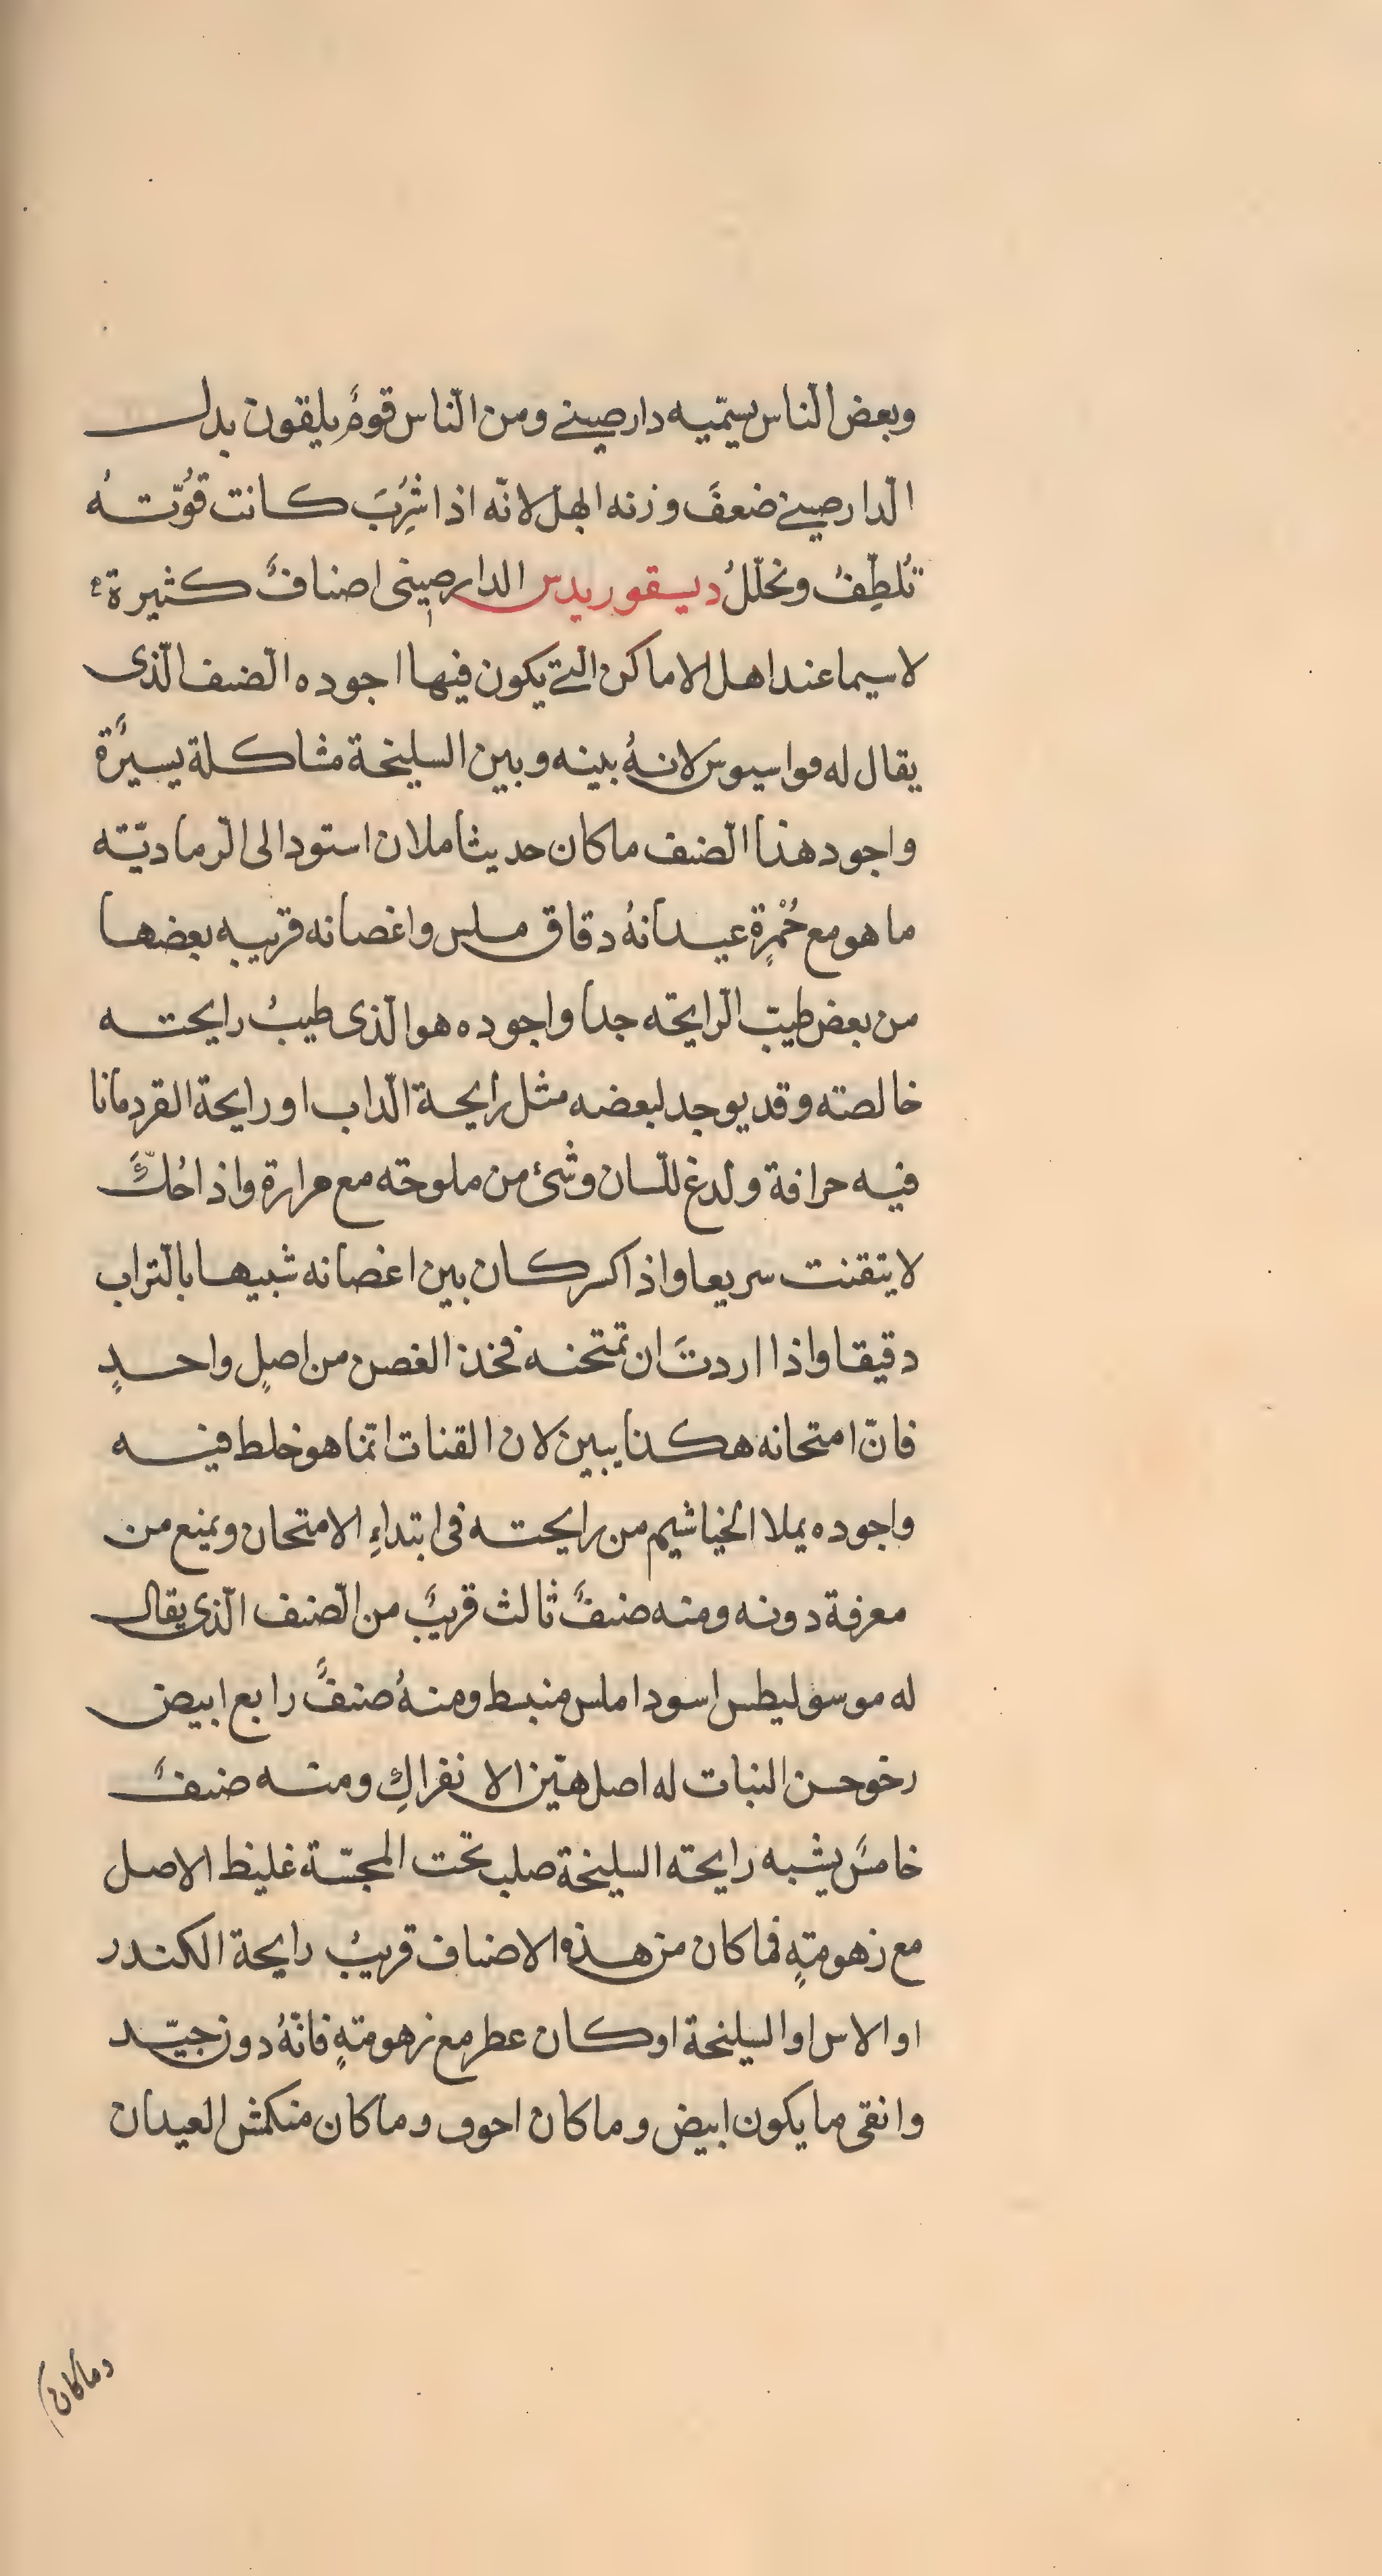 وبعض الّناس يسمّيه دارصينى ومن الّناس قومٌ يلقون بدل
الّدارصينى ضعفَ وزنه ابهلّ لانّه اذا شُرِبَ كانت قُوّتهُ
تُلطِّفُ وتحلّلُ ديسقوريدس الدارصينى اصنافٌ كثيرة
لاسيما عند اهل الاماكن الّتى يكون فيها اجوده الّصنف الّذى
يقال له مواسيوس لانهُ بينه وبين السليخة مشاكلة يسيرَة
واجود هذا الّصنف ما كان حديثا ملان استود الى الّرماديّته
ما هو مع حُمْرةٍ عيدانهُ دقاق ملس واغصانه قريبه بعضها
من بعض طيبّ الّرايحّه جدا واجوده هو الّذى طيبُ رايحته
خالصته وقد يوجد لبعضه مثل رايحة الّداب او رايحة القردمانا
فيه حرافة ولدغ للّسان وشئ من ملوحّه مع مرارة واذا حُكَّ
لا يتقنت سريعا واذا كسر كان بين اغصانه شبيها بالتّراب
دقيقا واذا اردتَ ان تمتحنه فخذ الغصن من اصلٍ واحدٍ
فانّ امتحانه هكذا يبين لان القنات انّما هو خلط فيه
واجوده يملا الخياشيم من رايحته فى ابتداءِ الامتحان ويمنع من
معرفة دونه ومنه صنفٌ ثالث قريبٌ من الّصنف الّذى يقال
له موسوليطس اسود املس منبسط ومنهُ صنفٌ رابع ابيض
رخو حسن النبات له اصل هيّن الانفراكِ ومنه صنفٌ
خامسٌ يشبه رايحته السليخة صلب تحت المجسّة غليظ الاصل
مع زهومتهٍ فما كان من هذه الاصناف قريبُ رايحة الكندر
او الاس او السليخة او كان عطر مع زهومتهٍ فانّهُ دون جيّد
وانقى ما يكون ابيض وما كان احوف وما كان منكمش العيدان
وما كان